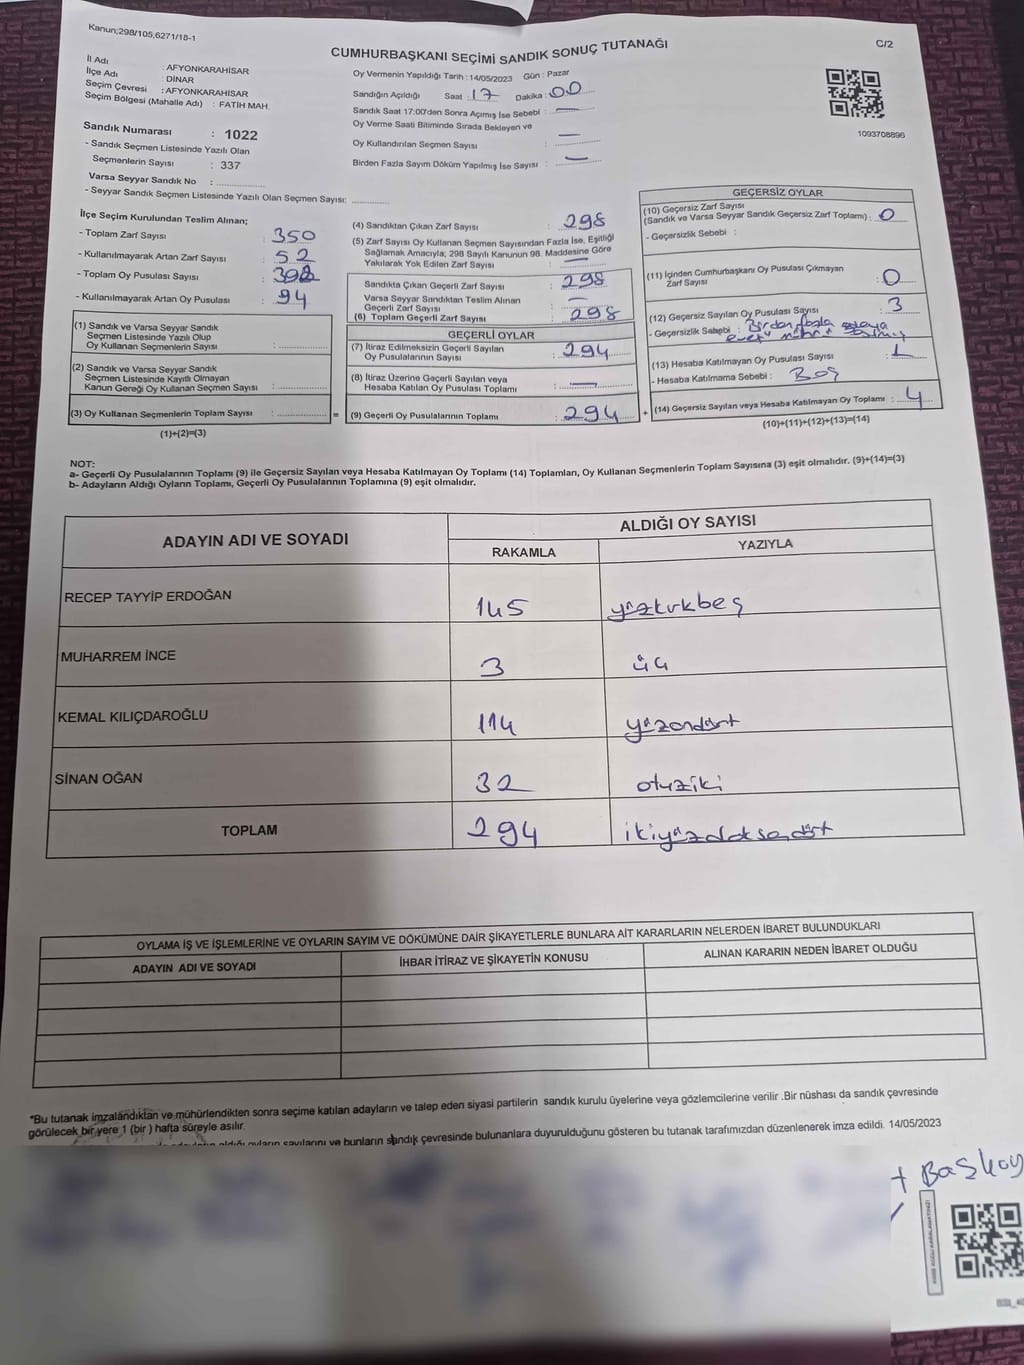 Kanun;298/105,6271/18-1
C/2
CUMHURBAŞKANI SEÇİMİ SANDIK SONUÇ TUTANAĞI
İl Adı : AFYONKARAHİSAR
İlçe Adı : DİNAR
Seçim Çevresi : AFYONKARAHİSAR
Seçim Bölgesi (Mahalle Adı) : FATİH MAH.
Sandık Numarası : 1022
- Sandık Seçmen Listesinde Yazılı Olan
Seçmenlerin Sayısı : 337
Varsa Seyyar Sandık No :
- Seyyar Sandık Seçmen Listesinde Yazılı Olan Seçmen Sayısı:
Oy Vermenin Yapıldığı Tarih : 14/05/2023 Gün : Pazar
Sandığın Açıldığı Saat : 17 Dakika : 00
Sandık Saat 17:00'den Sonra Açımış İse Sebebi : —
Oy Verme Saati Bitiminde Sırada Bekleyen ve
Oy Kullandırılan Seçmen Sayısı : —
Birden Fazla Sayım Döküm Yapılmış İse Sayısı : —
1093708896
İlçe Seçim Kurulundan Teslim Alınan;
- Toplam Zarf Sayısı : 350
- Kullanılmayarak Artan Zarf Sayısı : 52
- Toplam Oy Pusulası Sayısı :
- Kullanılmayarak Artan Oy Pusulası : 94
(1) Sandık ve Varsa Seyyar Sandık
Seçmen Listesinde Yazılı Olup
Oy Kullanan Seçmenlerin Sayısı :
(2) Sandık ve Varsa Seyyar Sandık
Seçmen Listesinde Kayıtlı Olmayan
Kanun Gereği Oy Kullanan Seçmen Sayısı :
(3) Oy Kullanan Seçmenlerin Toplam Sayısı : =
(1)+(2)=(3)
(4) Sandıktan Çıkan Zarf Sayısı : 298
(5) Zarf Sayısı Oy Kullanan Seçmen Sayısından Fazla İse, Eşitliği
Sağlamak Amacıyla; 298 Sayılı Kanunun 98. Maddesine Göre
Yakılarak Yok Edilen Zarf Sayısı : —
Sandıkta Çıkan Geçerli Zarf Sayısı : 298
Varsa Seyyar Sandıktan Teslim Alınan
Geçerli Zarf Sayısı : —
(6) Toplam Geçerli Zarf Sayısı : 298
GEÇERLİ OYLAR
(7) İtiraz Edilmeksizin Geçerli Sayılan
Oy Pusulalarının Sayısı : 294
(8) İtiraz Üzerine Geçerli Sayılan veya
Hesaba Katılan Oy Pusulası Toplamı : —
(9) Geçerli Oy Pusulalarının Toplamı : 294 +
GEÇERSİZ OYLAR
(10) Geçersiz Zarf Sayısı
(Sandık ve Varsa Seyyar Sandık Geçersiz Zarf Toplamı) : 0
- Geçersizlik Sebebi :
(11) İçinden Cumhurbaşkanı Oy Pusulası Çıkmayan
Zarf Sayısı : 0
(12) Geçersiz Sayılan Oy Pusulası Sayısı : 3
- Geçersizlik Sebebi : Birden fazla
(13) Hesaba Katılmayan Oy Pusulası Sayısı : 1
- Hesaba Katılmama Sebebi : Boş
(14) Geçersiz Sayılan veya Hesaba Katılmayan Oy Toplamı : 4
(10)+(11)+(12)+(13)=(14)
NOT:
a- Geçerli Oy Pusulalarının Toplamı (9) ile Geçersiz Sayılan veya Hesaba Katılmayan Oy Toplamı (14) Toplamları, Oy Kullanan Seçmenlerin Toplam Sayısına (3) eşit olmalıdır. (9)+(14)=(3)
b- Adayların Aldığı Oyların Toplamı, Geçerli Oy Pusulalarının Toplamına (9) eşit olmalıdır.
ADAYIN ADI VE SOYADI
ALDIĞI OY SAYISI
RAKAMLA YAZIYLA
RECEP TAYYİP ERDOĞAN 145 yüzkırkbeş
MUHARREM İNCE 3 üç
KEMAL KILIÇDAROĞLU 114 yüzondört
SİNAN OĞAN 32 otuziki
TOPLAM 294 ikiyüzdoksandört
OYLAMA İŞ VE İŞLEMLERİNE VE OYLARIN SAYIM VE DÖKÜMÜNE DAİR ŞİKAYETLERLE BUNLARA AİT KARARLARIN NELERDEN İBARET BULUNDUKLARI
ADAYIN ADI VE SOYADI İHBAR İTİRAZ VE ŞİKAYETİN KONUSU ALINAN KARARIN NEDEN İBARET OLDUĞU
*Bu tutanak imzalandıktan ve mühürlendikten sonra seçime katılan adayların ve talep eden siyasi partilerin sandık kurulu üyelerine veya gözlemcilerine verilir .Bir nüshası da sandık çevresinde
görülecek bir yere 1 (bir ) hafta süreyle asılır.
aldığı oyların sayılarını ve bunların sandık çevresinde bulunanlara duyurulduğunu gösteren bu tutanak tarafımızdan düzenlenerek imza edildi. 14/05/2023